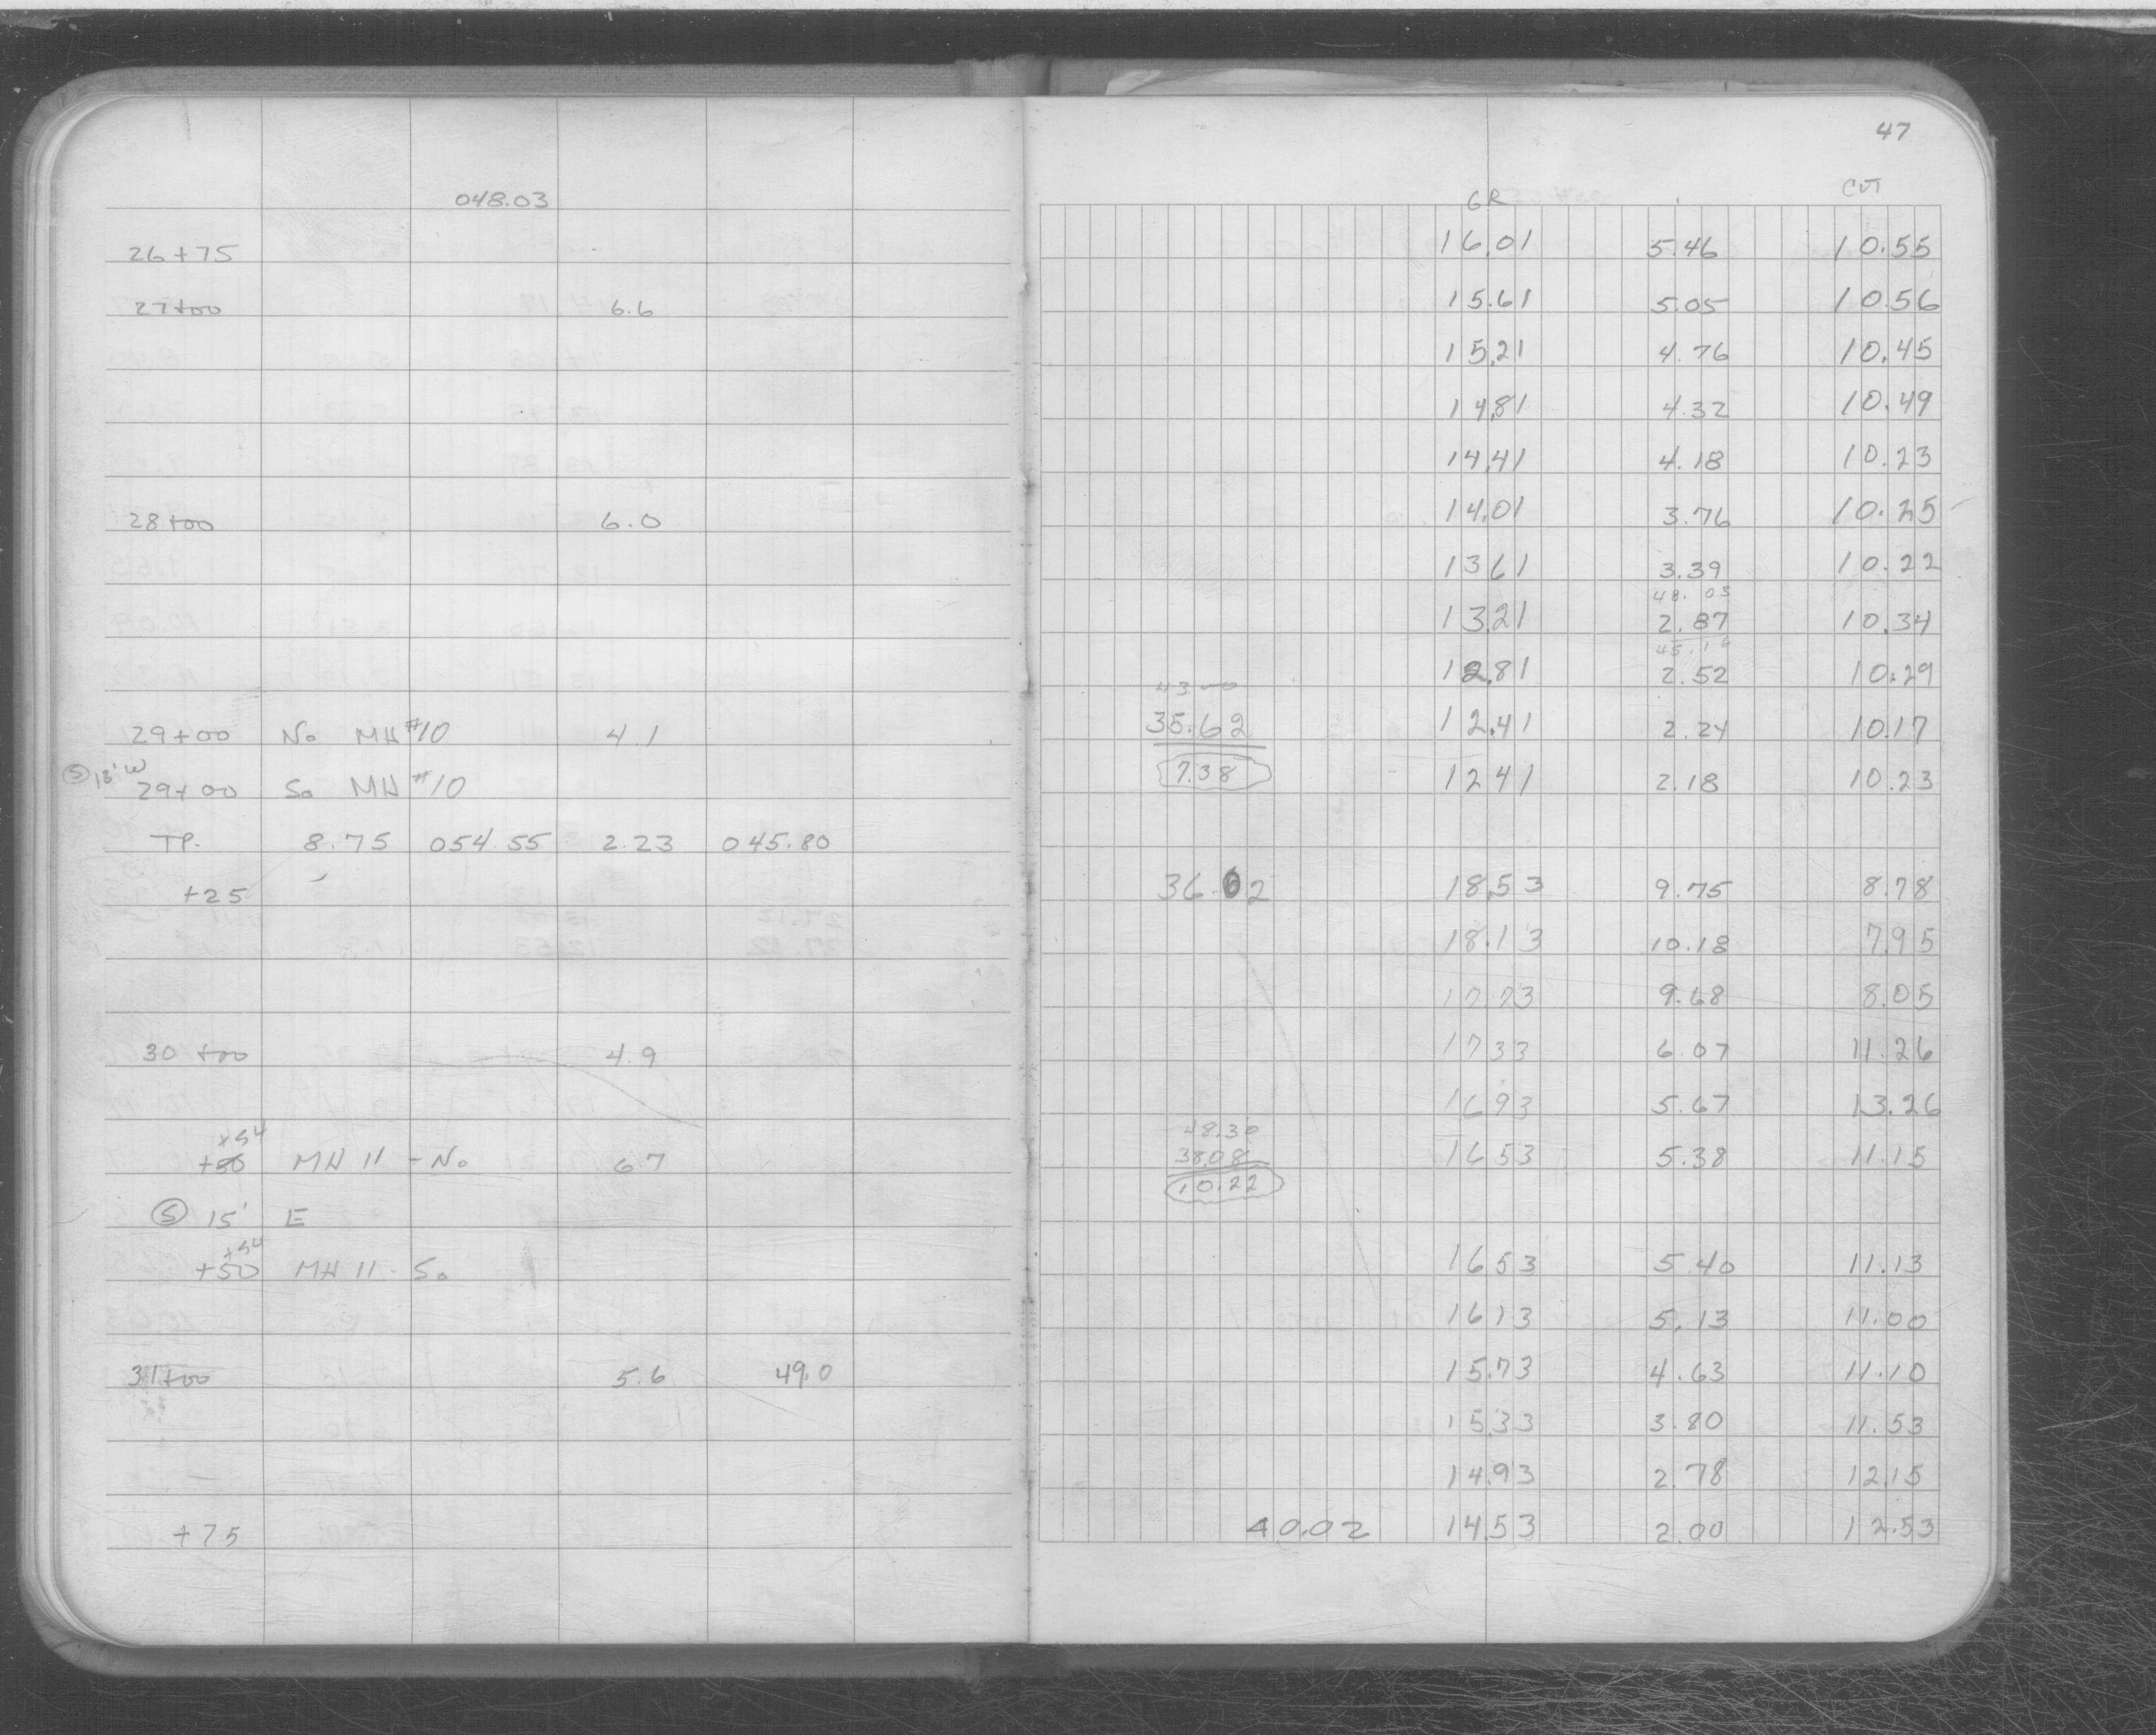 47
048.03 GR CUT
26+75 16.01 5.46 10.55
27+00 6.6 15.61 5.05 10.56
15.21 4.76 10.45
14.81 4.32 10.49
14.41 4.18 10.23
28+00 6.0 14.01 3.76 10.25
13.61 3.39 10.22
48.03
13.21 2.87 10.34
45.16
12.81 2.52 10.29
43.00
29+00 No MH #10 4.1 35.62 12.41 2.24 10.17
Ⓢ 15' W 29+00 So MH #10 7.38 12.41 2.18 10.23
TP. 8.75 054.55 2.23 045.80
+25 36.62 18.53 9.75 8.78
18.13 10.18 7.95
17.73 9.68 8.05
30+00 4.9 17.33 6.07 11.26
16.93 5.67 13.26
+54 48.30
+50 MH 11 - No 6.7 38.08 16.53 5.38 11.15
10.22
Ⓢ 15' E
+54
+50 MH 11 - So 16.53 5.40 11.13
16.13 5.13 11.00
31+00 5.6 49.0 15.73 4.63 11.10
15.33 3.80 11.53
14.93 2.78 12.15
+75 40.02 14.53 2.00 12.53